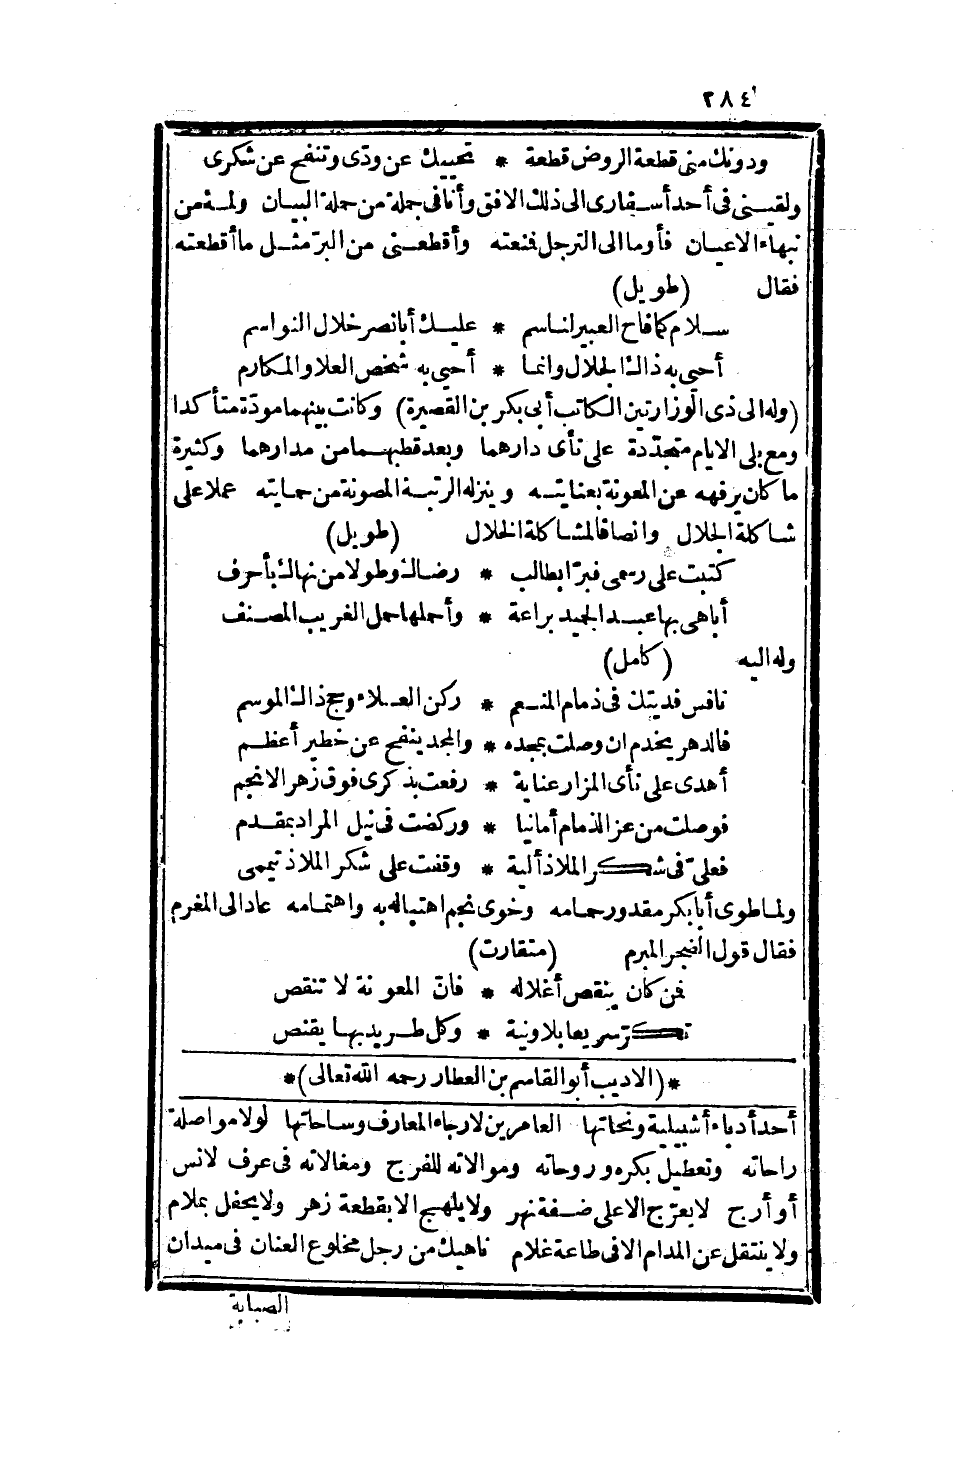 ٢٨٤
ودونك منى قطعة الروض قطعة * تحييك عن ودّى وتنفح عن شكرى
ولقيسنى فى أحد أسفارى الى ذلك الافق وأنا فى جملة من حملة البيان ولمة من
نبهاء الاعيان فأوما الى الترجل فنعته وأقطعنى من البرّ مثل ما أقطعته
فقال (طويل)
سلام كما فاح العبير لناسم * عليك أبا نصر خلال النواسم
أحيى به ذاك الجلال وانما * أحيى به شخص العلا والمكارم
(وله الى ذى الوزارتين الكاتب أبى بكر بن القصيرة) وكانت بينهما مودّة متأكدا
ومع بلى الايام متجدّدة على نأى دارهما وبعد قطبهما من مدارهما وكثيرة
ما كان يرفهه عن المعونة بعنايته وينزله الرتبة المصونة من حمايته عملا على
شاكلة الجلال وانصافا لمشاكلة الخلال (طويل)
كتبت على رسمى فبرّا بطالب * رضاك وطولا من نهاك بأحرف
أباهى بها عبد الحميد براعة * وأحملها حمل الغريب المصنف
وله اليه (كامل)
نافس فديتك فى ذمام المنعم * ركن العلاء وحج ذاك الموسم
فالدهر يخدم ان وصلت بمجده * والمجد ينفح عن خطير أعظم
أهدى على نأى المزار عناية * رفعت بذكرى فوق زهر الانجم
فوصلت من عز الذمام أمانيا * وركضت فى نيل المراد بمقدم
فعلىّ فى شكر الملاذ ألية * وقفت على شكر الملاذ تيممى
ولما طوى أبا بكر مقدور حمامه وخوى نجم اهتباله به واهتمامه عاد الى المغرم
فقال قول الضجر المبرم (متقارت)
فمن كان ينقص أغلاله * فانّ المعونة لا تنقص
تكرّ سريعا بلا ونية * وكل طريد بها يقنص
*(الاديب أبو القاسم بن العطار رحمه الله تعالى)*
أحد أدباء أشبيلية ونحاتها العامرين لارجاء المعارف وساحاتها لولا مواصلة
راحاته وتعطيل بكره وروحاته وموالاته للفرج ومغالاته فى عرف لانس
أو أرج لا يعرّج الا على ضفة نهر ولا يلهج الا بقطعة زهر ولا يحفل بملام
ولا ينتقل عن المدام الا فى طاعة غلام ناهيك من رجل مخلوع العنان فى ميدان
الصبابة